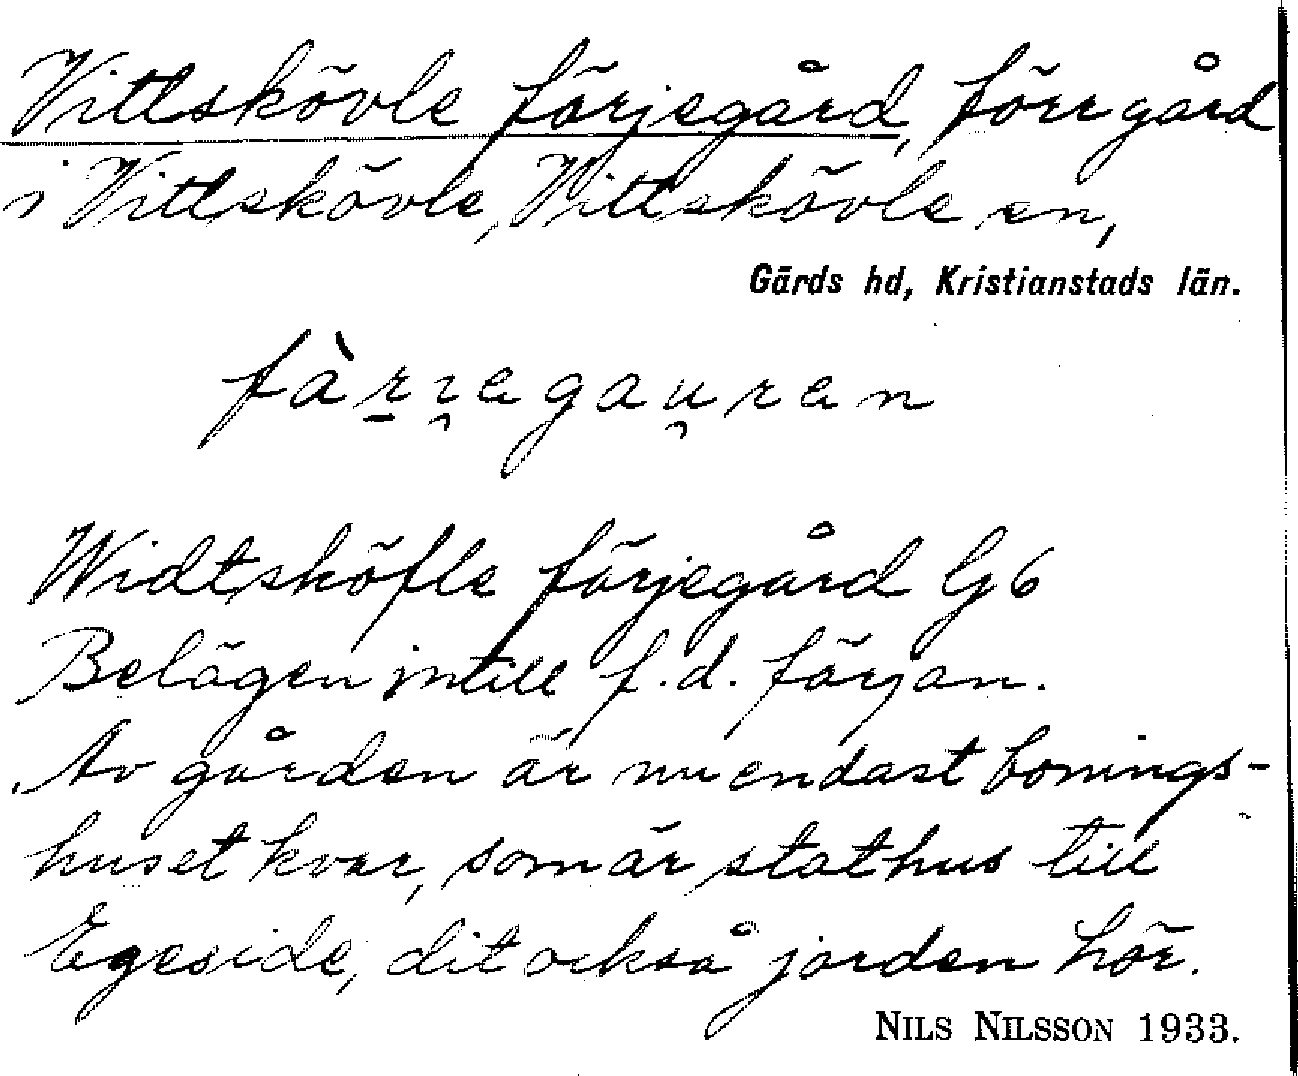 Vittskövle färjegård, förr gård
i Vittskövle, Vittskövle sn,
Gärds hd, Kristianstads län.
fàrɪegau̯ren
Widtsköfle färjegård G 6
Belägen intill f.d. färjan.
Av gården är nu endast bonings-
huset kvar, som är stathus till
Egeside, dit också jorden hör.
NILS NILSSON 1933.